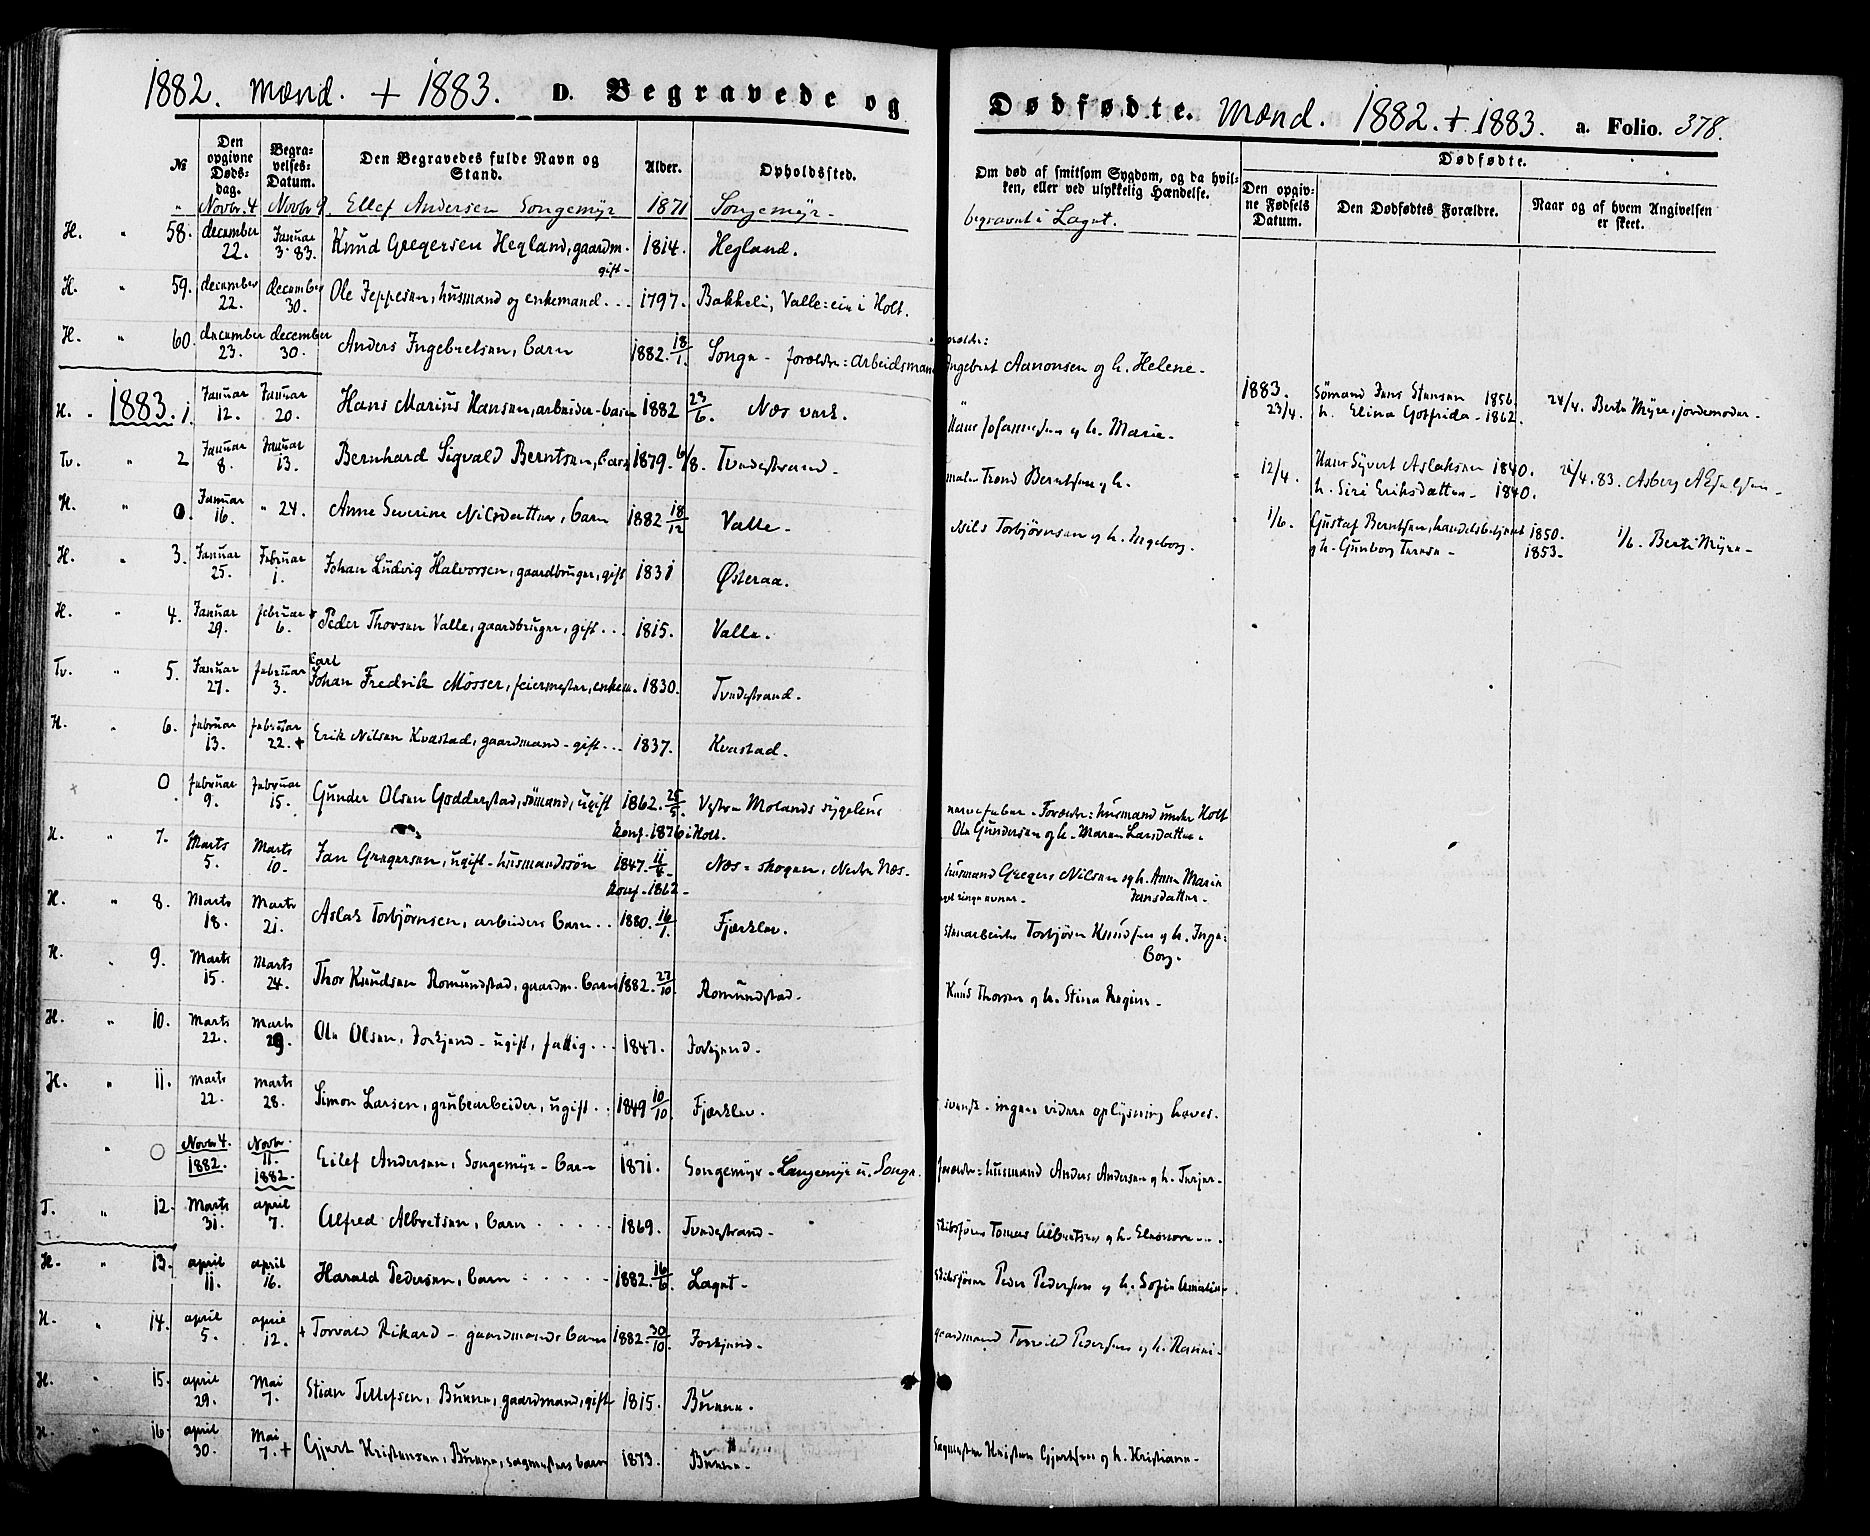 1882. Mænd. + 1883. D. Begravede og
Dødfødte. Mænd. 1882. + 1883. a. Folio. 378.
№
Den opgivne Døds-dag.
Begra-velses-Datum.
Den Begravedes fulde Navn og Stand.
Alder.
Opholdssted.
Om død af smitsom Sygdom, og da hvil-
ken, eller ved ulykkelig Hændelse.
Dødfødte.
Den opgiv-ne Fødsels Datum.
Den Dødfødtes Forældre.
Naar og af hvem Angivelsen er skeet.
" Novbr. 4 Novbr Ellef Andersen Songemyr 1871 Songemyr - begravet i Laget.
H. " 58. december 22. Januar 3. 83. Knud Gregersen Hegland, gaardm. gift - 1814. Hegland.
H. " 59. december 22. december 30. Ole Jeppesen, husmand og enkemand... 1797. Bakkeli, Valle: eie i Holt.
H. " 60. december 23. december 30. Anders Ingebretsen, barn 1882. 18/1. Songe - forældre: arbeidsmand Ingebret Aanonsen og h. Helene -
H. " 1883. 1. Januar 12. Januar 20. Hans Marius Hansen, arbeider - barn 1882 23/6. Næs verk. Hans Johannesen og h. Marie.
1883. 23/4. Sømand Jens Stensen 1856. h. Elina Gotfrida - 1862. 24/4. Berte Myre, jordemoder.
Tv. " 2 Januar 8. Januar 13. Bernhard Sigvald Berntsen, barn 1879. 6/8. Tvedestrand. Trond Berntsen og h.
" 12/4. Hans Syvert Aslaksen 1840. h. Siri Eriksdatter - 1840. /4. 83. Asberg
H. " 0. Januar 16. " 24. Anne Severine Nilsdatter, barn 1882 18/12 Valle - Nils Torbjørnsen og h. Ingeborg.
" 1/6. Gustaf Berntsen, handelsbetjent 1850. og h. Gunborg Terese - 1853. 1/6. Berte Myre -
H. " 3. Januar 25. Februar 1. Johan Ludvig Halvorsen, gaardbruger, gift 1831 Østeraa.
H. " 4. Januar 29. februar 6. Peder Thorsen Valle, gaardbruger, gift... 1815. Valle.
Tv. " 5. Januar 27. februar 3. Carl Johan Fredrik Mösser, feiermester, enkem. 1830. Tvedestrand.
H. " 6. februar 13. februar 22. + Erik Nilsen Kvastad, gaardmand - gift... 1837. Kvastad.
+ 0. februar 9. februar 15. Gunder Olsen Godderstad, sømand, ugift 1862. 25/5. Konf. 1876 i Holt. Vestre Molands sygehus nervefeber - Forældre: husmand under Holt Ole Gundersen og h. Maren Larsdatter.
H. " 7. Marts 5. Marts 10. Jan Gregersen, ugift - husmandssøn 1847. Konf. 1862 - Næs - skogen, Nedre Næs - husmand Gregers Nilsen og h. Anne Marie Jansdatter.
H. " 8. Marts 18. Marts 21. Aslak Torbjørnsen, arbeiders barn.. 1880. 16/1. Fjærklev. stenarbeider Torbjørn Knudsen og h. Inge: borg.
H. " 9. Marts 15. Marts 24. Thor Knudsen Romundstad, gaardm. barn 1882. 27/10. Romundstad. Knud Thorsen og h. Stina Regine -
H. " 10. Marts 22. Marts 29. Ole Olsen, Forkjend - ugift, fattig... 1847. Forkjend -
H. " 11. Marts 22. Marts 28. Simon Larsen, grubearbeider, ugift.. 1849 10/10. Fjærklev. svensk - ingen videre oplysning haves.
" 0 Novbr 4. 1882. Novbr. 11. 1882. Eilef Andersen, Songemyr - barn 1871. Songemyr - Langemyr u. Songe. forældre: husmand Anders Andersen og h. Terjer -
T. " 12. Marts 31. april 7. Alfred Albretsen, barn..... 1869. Tvedestrand - skibsfører Tomas Albretsen og h. Elenora...
H. " 13. april 11. april 16. Harald Pedersen, barn..... 1882. 16/6. Laget - Skibsfører Peder Pedersen og h. Sofie Amalie -
H. " 14. april 5. april 12. + Torvald Rikard - gaardmands barn 1882. 30/10. Forkjend - gaardmand Torvild Pedersen og h.
H. " 15. april 29. Mai 7. Stian Tellefsen, Buene, gaardmand, gift 1815. Buene.
H. " 16. april 30. Mai 7. + Gjert Kristensen, Buene, sagmesters barn 1873. Buene - Sagmester Kristen Gjertsen og h. Kristiane -